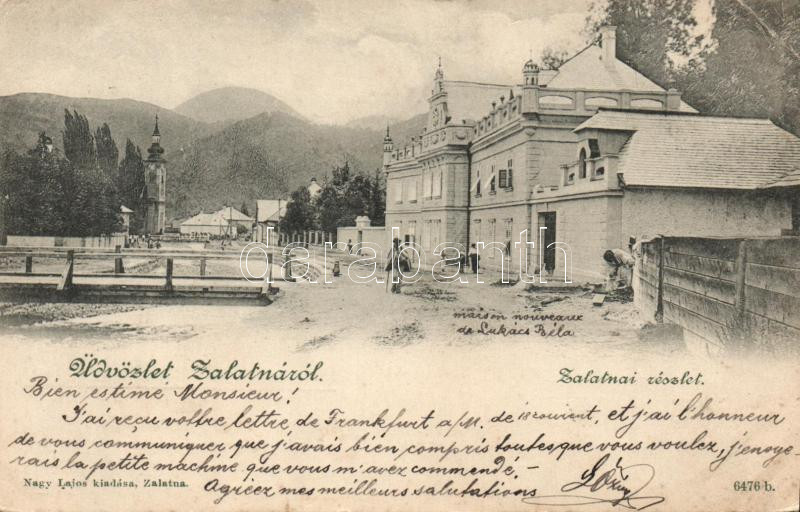 darabanth.com
maison nouveaux
de Lukács Béla
Üdvözlet Zalatnáról.
Zalatnai részlet.
Bien estimé Monsieur!
J'ai reçu vottre lettre, de Frankfurt a/M. de 18 courient, et j'ai l'honneur
de vous communiquer que j'avais bien compris toutesque vous voulez, j'enoye-
rais la petite machine que vous m'avez commendé. –
Agréez mes meilleurs salutations
Nagy Lajos kiadása, Zalatna.
6476 b.